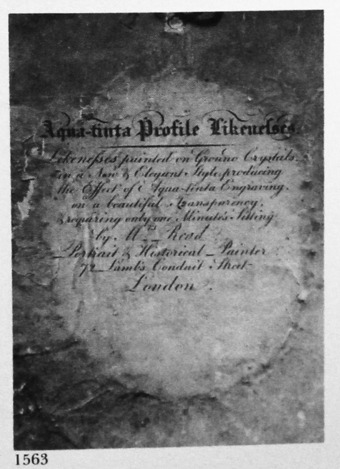 Aqua-tinta Profile Likenesses.
Likenesses painted on Ground Crystals
in a New & Elegant Style, producing
the Effect of Aqua-tinta Engraving,
on a beautiful Transparency;
& requiring only one Minute's Sitting
by Mrs Read
Portrait & Historical Painter
72 Lamb's Conduit Street
London.
1563